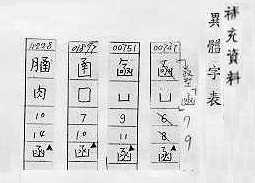 補充資料
異體字表
01897 00751 00747
函
肉 囗 凵 凵
10 7 9 6 7
14 10 11 8 9
函▲ 函▲ 函▲ 函▲